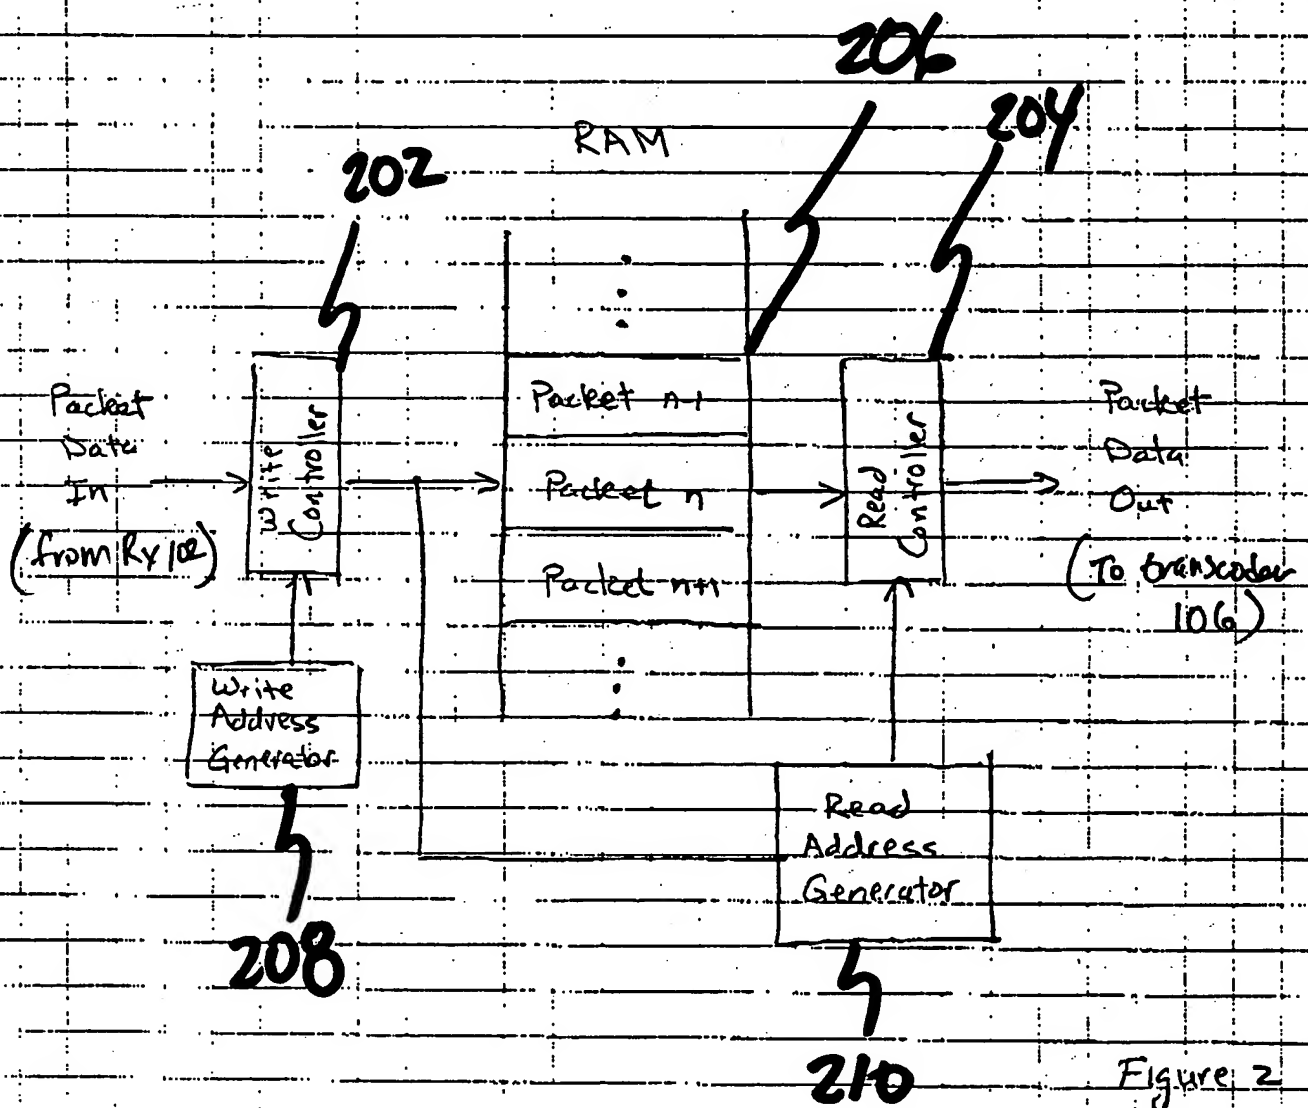 206
204
RAM
202
Packet
Data
In
(from Rx 102)
Write
Controller
Packet n-1
Packet n
Packet n+1
Read
Controller
Packet
Data
Out
(To transcoder
106)
Write
Address
Generator
Read
Address
Generator
208
210
Figure 2